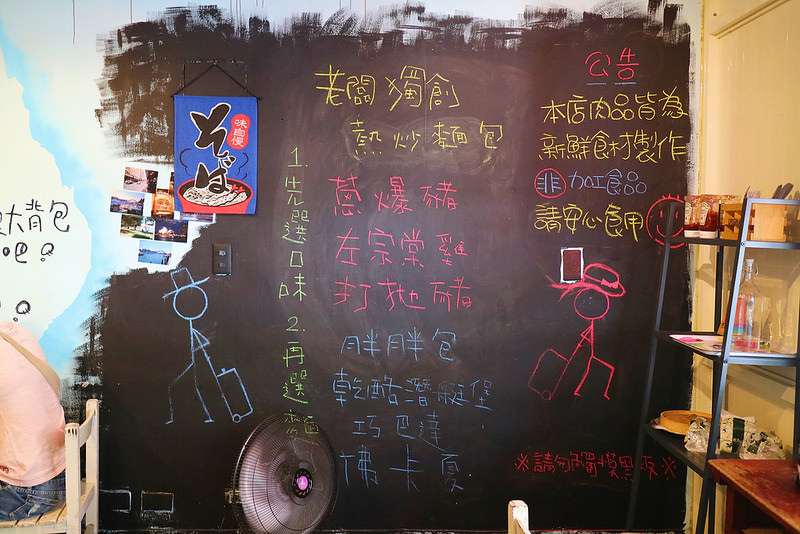 老闆獨創
熱炒麵包
1.先選口味
蔥爆豬
左宗棠雞
打拋豬
2.再選
胖胖包
乾酪潛艇堡
巧巴達
佛卡夏
公告
本店肉品皆為
新鮮食材製作
非加工食品
請安心食用
※請勿觸摸黑板※
味自慢
そば
大背包
吧?
?